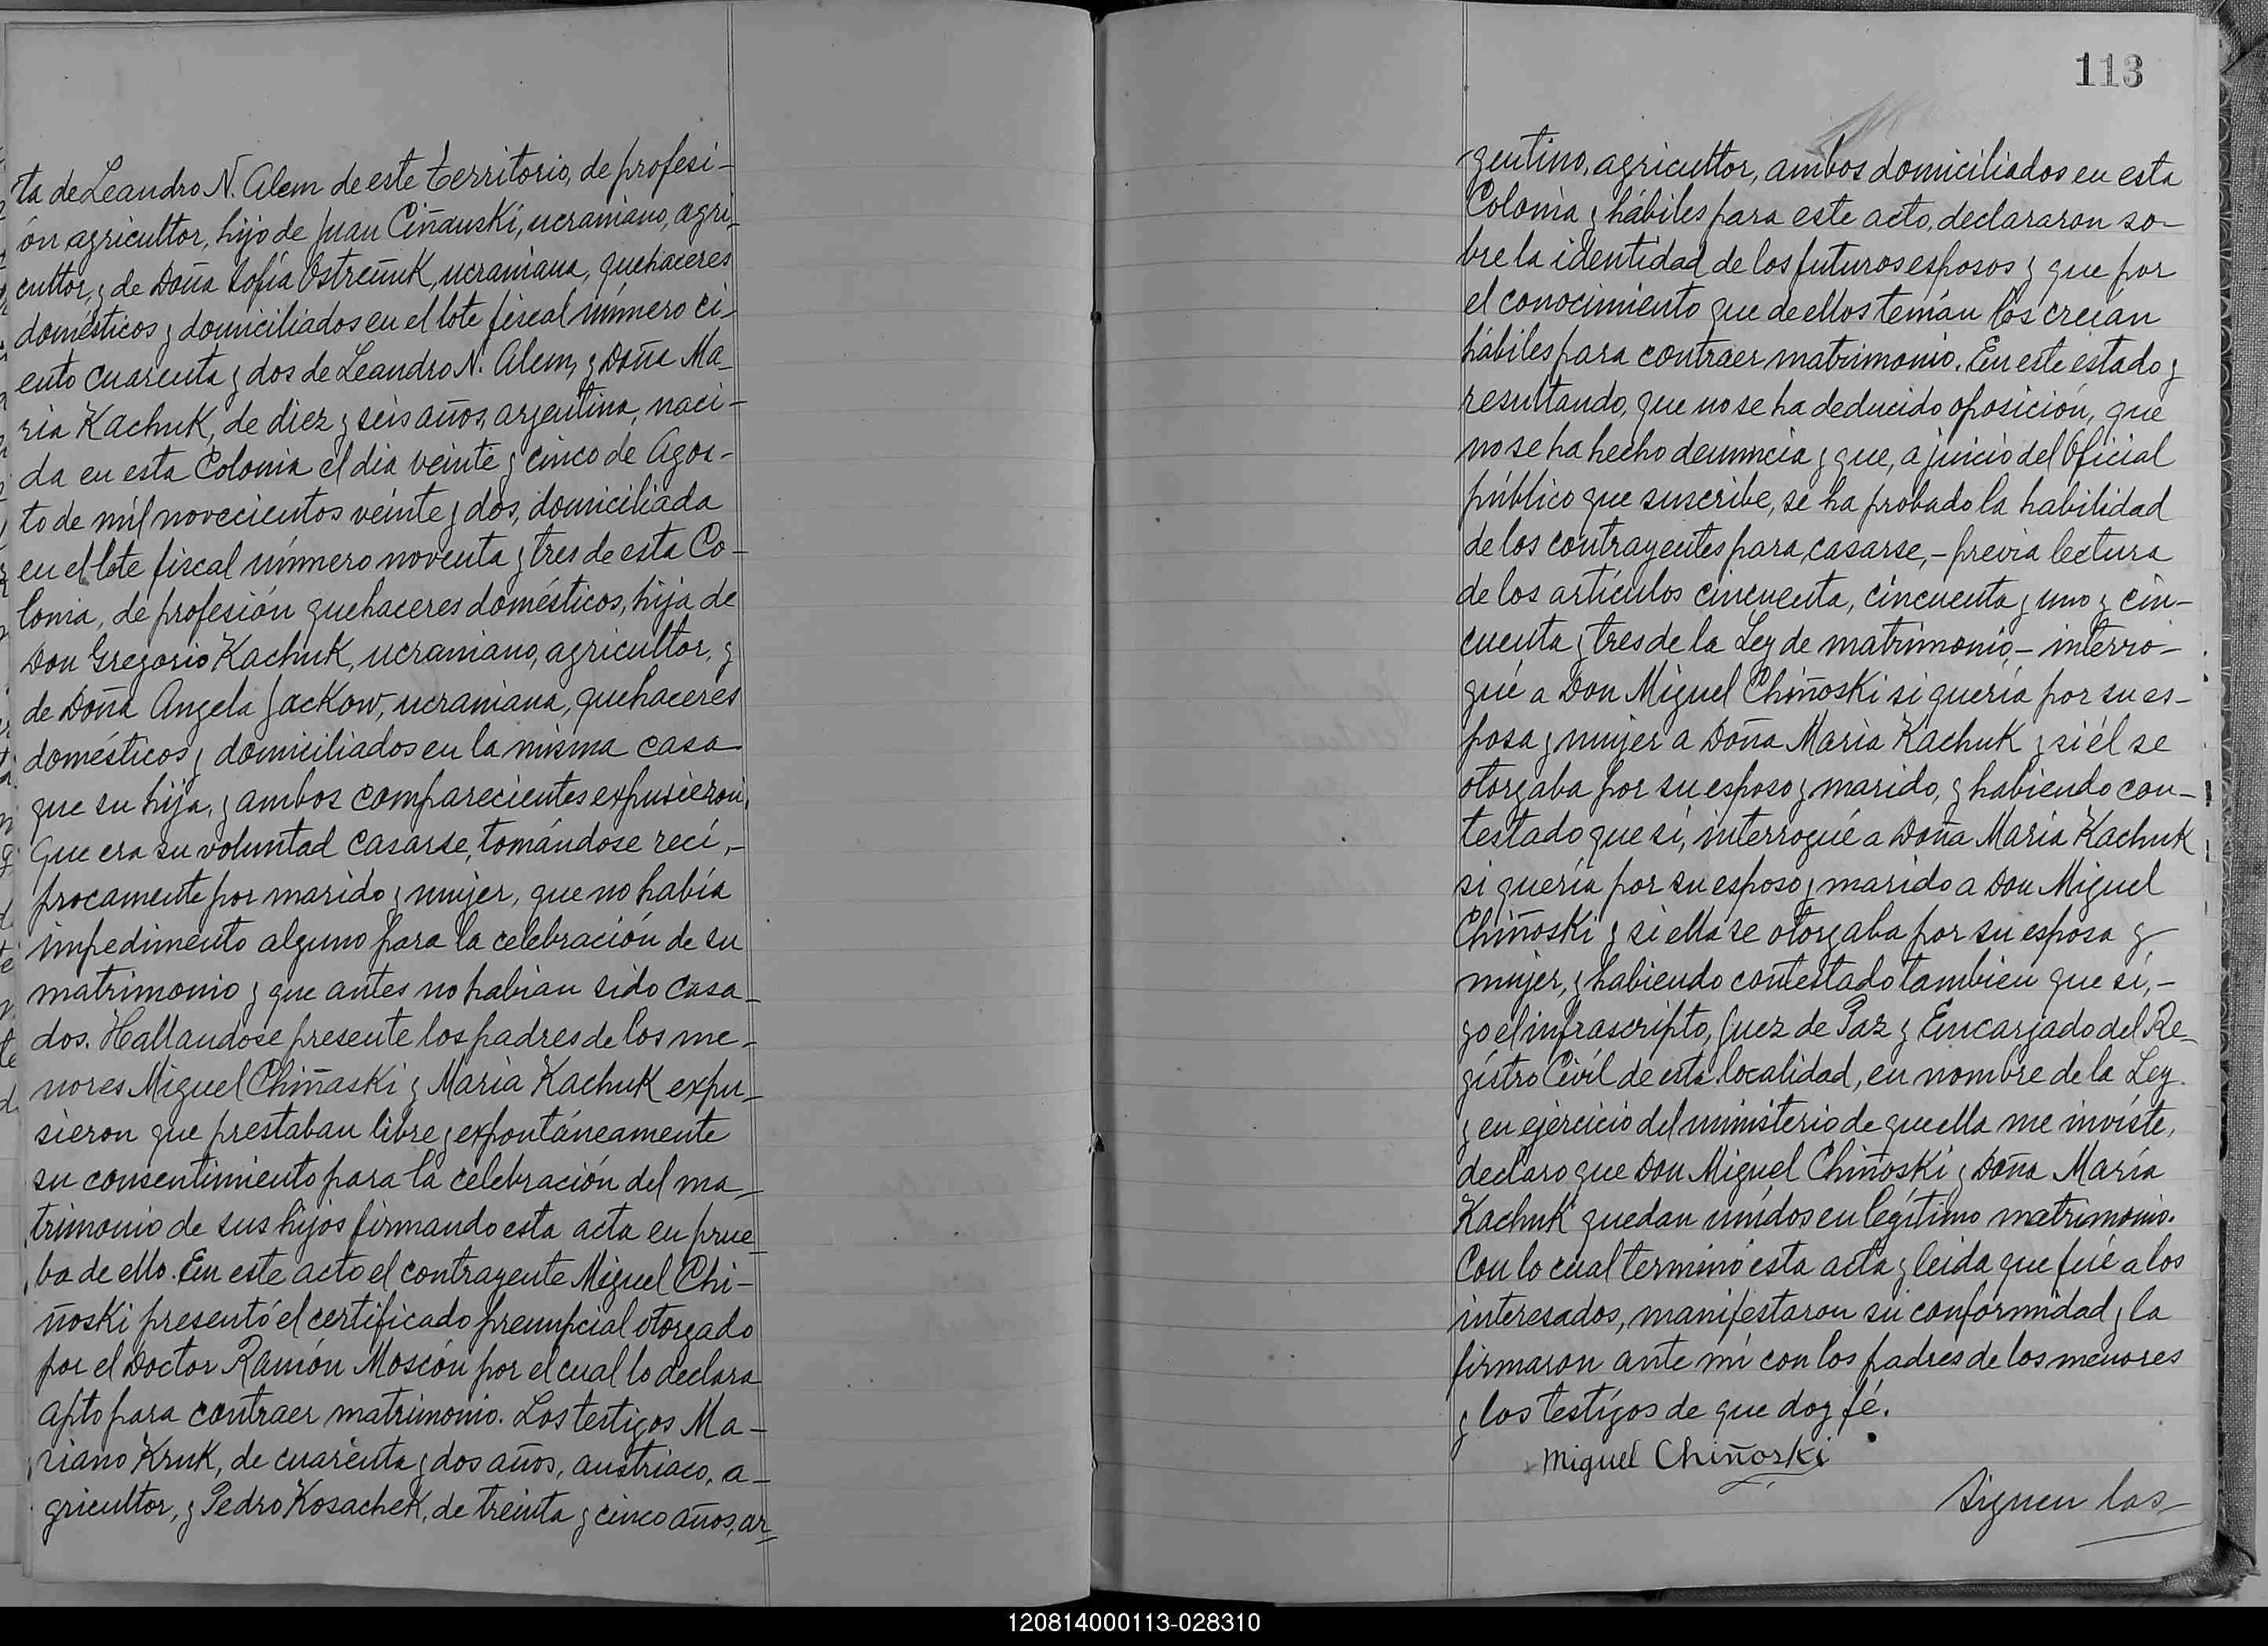 ta de Leandro N. Alem de este territorio, de profesi-
ón agricultor, hijo de Juan Ciñauski, ucraniano, agri-
cultor, y de Doña Sofía Ostreñuk, ucraniana, quehaceres
domésticos y domiciliados en el lote fiscal número ci-
ento cuarenta y dos de Leandro N. Alem, y Doña Ma-
ria Kachuk, de diez y seis años, argentina, naci-
da en esta Colonia el dia veinte y cinco de Agos-
to de mil novecientos veinte y dos, domiciliada
en el lote fiscal número noventa y tres de esta Co-
lonia, de profesión quehaceres domésticos, hija de
Don Gregorio Kachuk, ucraniano, agricultor, y
de Doña Angela Jackow, ucraniana, quehaceres
domésticos y domiciliados en la misma casa
que su hija, y ambos comparecientes expusieron,
Que era su voluntad casarse, tomándose recí,-
procamente por marido y mujer, que no había
impedimento alguno para la celebración de su
matrimonio y que antes no habian sido casa-
dos. Hallandose presente los padres de los me-
nores Miguel Chiñaski y María Kachuk expu-
sieron que prestaban libre y expontáneamente
su consentimiento para la celebración del ma-
trimonio de sus hijos firmando esta acta en prue-
ba de ello. En este acto el contrayente Miguel Chi-
ñoski presentó el certificado prenupcial otorgado
por el Doctor Ramón Moscón por el cual lo declara
apto para contraer matrimonio. Los testigos Ma-
riano Kruk, de cuarenta y dos años, austriaco, a-
gricultor, y Pedro Kosachek, de treinta y cinco años, ar-
113
gentino, agricultor, ambos domiciliados en esta
Colonia y hábiles para este acto, declararon so-
bre la identidad de los futuros esposos y que por
el conocimiento que de ellos tenían los creían
hábiles para contraer matrimonio. En este estado y
resultando, que no se ha deducido oposición, que
no se ha hecho denuncia y que, a juicio del Oficial
público que suscribe, se ha probado la habilidad
de los contrayentes para casarse,- previa lectura
de los artículos cincuenta, cincuenta y uno y cin-
cuenta y tres de la Ley de matrimonio,- interro-
gué a Don Miguel Chiñoski si quería por su es-
posa y mujer a Doña María Kachuk y si él se
otorgaba por su esposo y marido, y habiendo con-
testado que sí, interrogué a Doña María Kachuk
si quería por su esposo y marido a Don Miguel
Chiñoski y si ella se otorgaba por su esposa y
mujer, y habiendo contestado tambien que sí,-
yo el infrascripto, Juez de Paz y Encargado del Re-
gistro Civil de esta localidad, en nombre de la Ley
y en ejercicio del ministerio de que ella me inviste,
declaro que Don Miguel Chiñoski y Doña María
Kachuk quedan unidos en legítimo matrimonio.
Con lo cual terminó esta acta y leida que fué a los
interesados, manifestaron su conformidad y la
firmaron ante mí con los padres de los menores
y los testigos de que doy fé.
Miguel Chiñoski
Siguen las
120814000113-028310